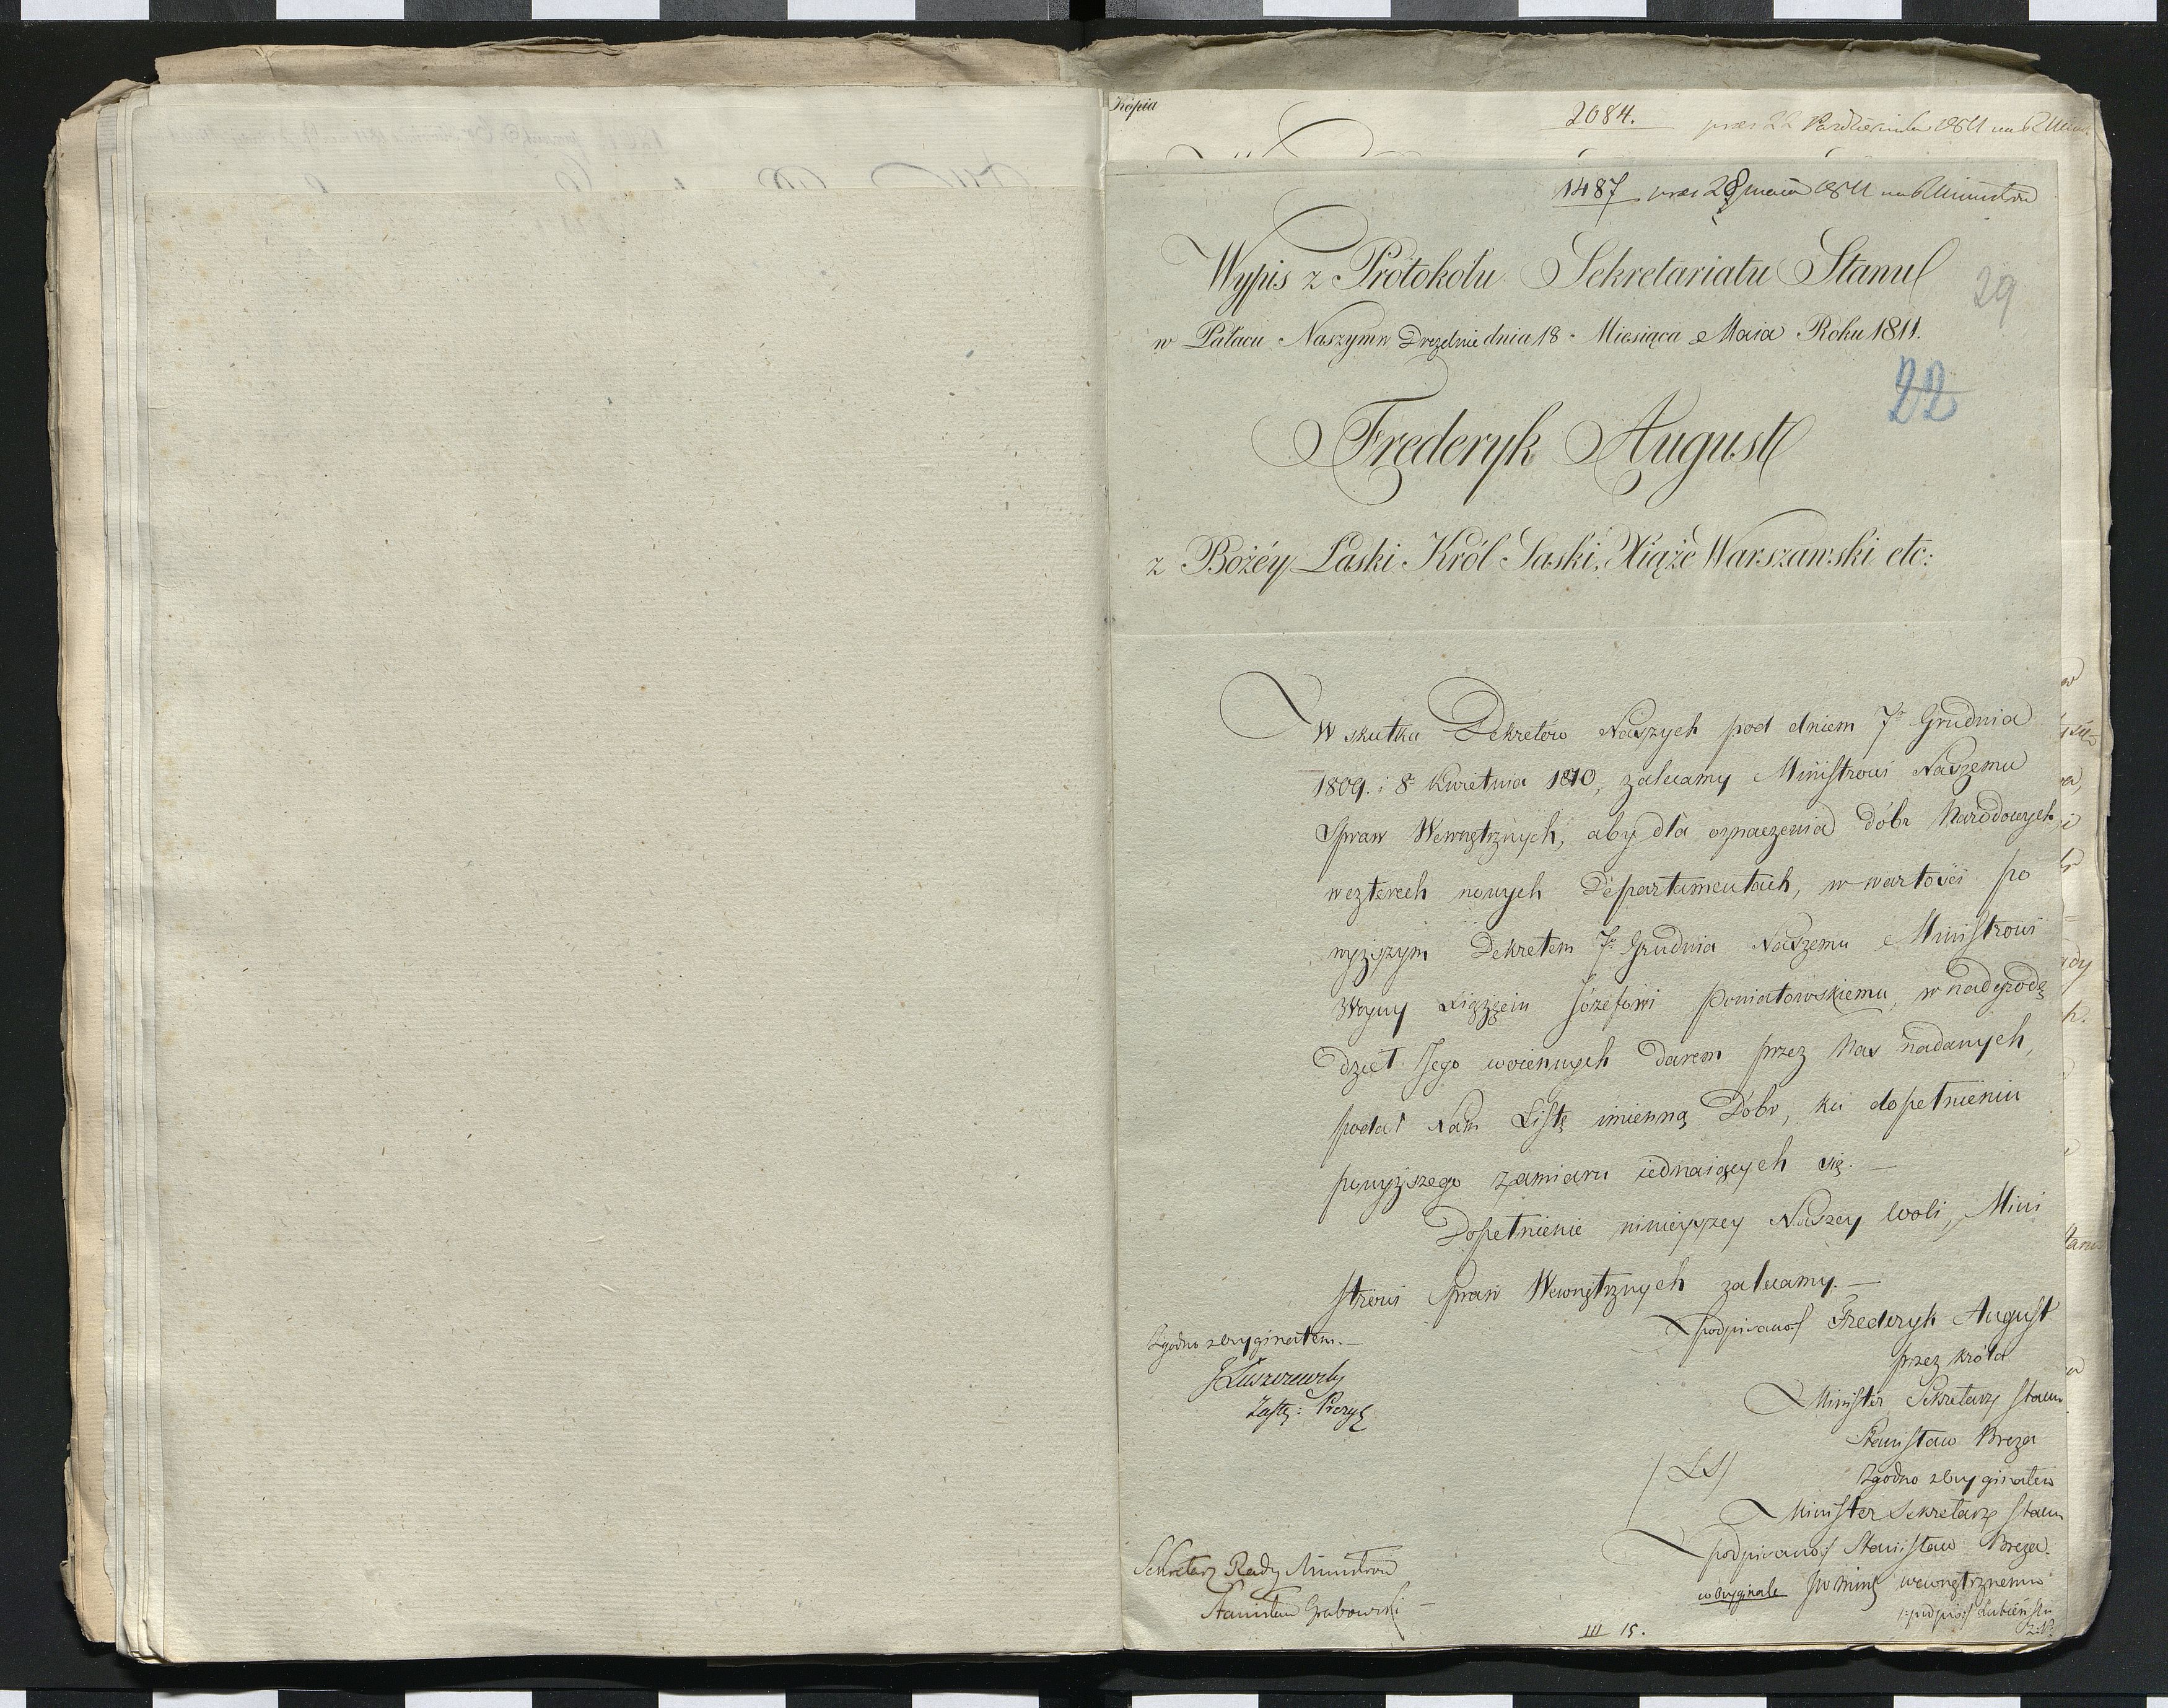 Kopia
2084.
1487 prae 28 maia 1811 na R Ministrów
Wypis z Protokółu Sekretariatu Stanu
29
w Pałacu Naszym w Dreznie dnia 18 Miesiąca Maia Roku 1811.
22
Frederyk August
z Bożéy Łaski Król Saski, Xiąże Warszawski etc:
W skutku Dekretów Naszych pod dniem 7º Grudnia
1809. i 8º Kwietnia 1810, zalecamy Ministrowi Naszemu
Spraw Wewnętrznych, aby dla oznaczenia dóbr Narodowych
w czterech nowych Departamentach, w wartości po
wyższym Dekretem 7º Grudnia Naszemu Ministrowi
Woyny Xiążęciu Józefowi Poniatowskiemu, w nadgrodę
dzieł Jego woiennych darem przez Nas nadanych,
podał Nam Listę imienną Dóbr, ku dopełnieniu
powyższego zamiaru iednaiących się. —
Dopełnienie ninieyszey Naszey woli, Mini
strowi Spraw Wewnętrznych zalecamy. —
podpisano/ Frederyk August
przez Króla
Minister Sekretarz Stanu
Stanisław Breza
/LS/
Zgodno z oryginałem
Minister Sekretarz Stanu
podpisano/ Stanisław Breza.
w oryginale JW Mins wewnętrznemu
/:podpis:/ Łubieński
Zgodno z oryginałem. —
J Łuszczewski
Zastę: Prezys
Sekretarz Rady Ministrów
Stanisław Grabowski —
III 15.